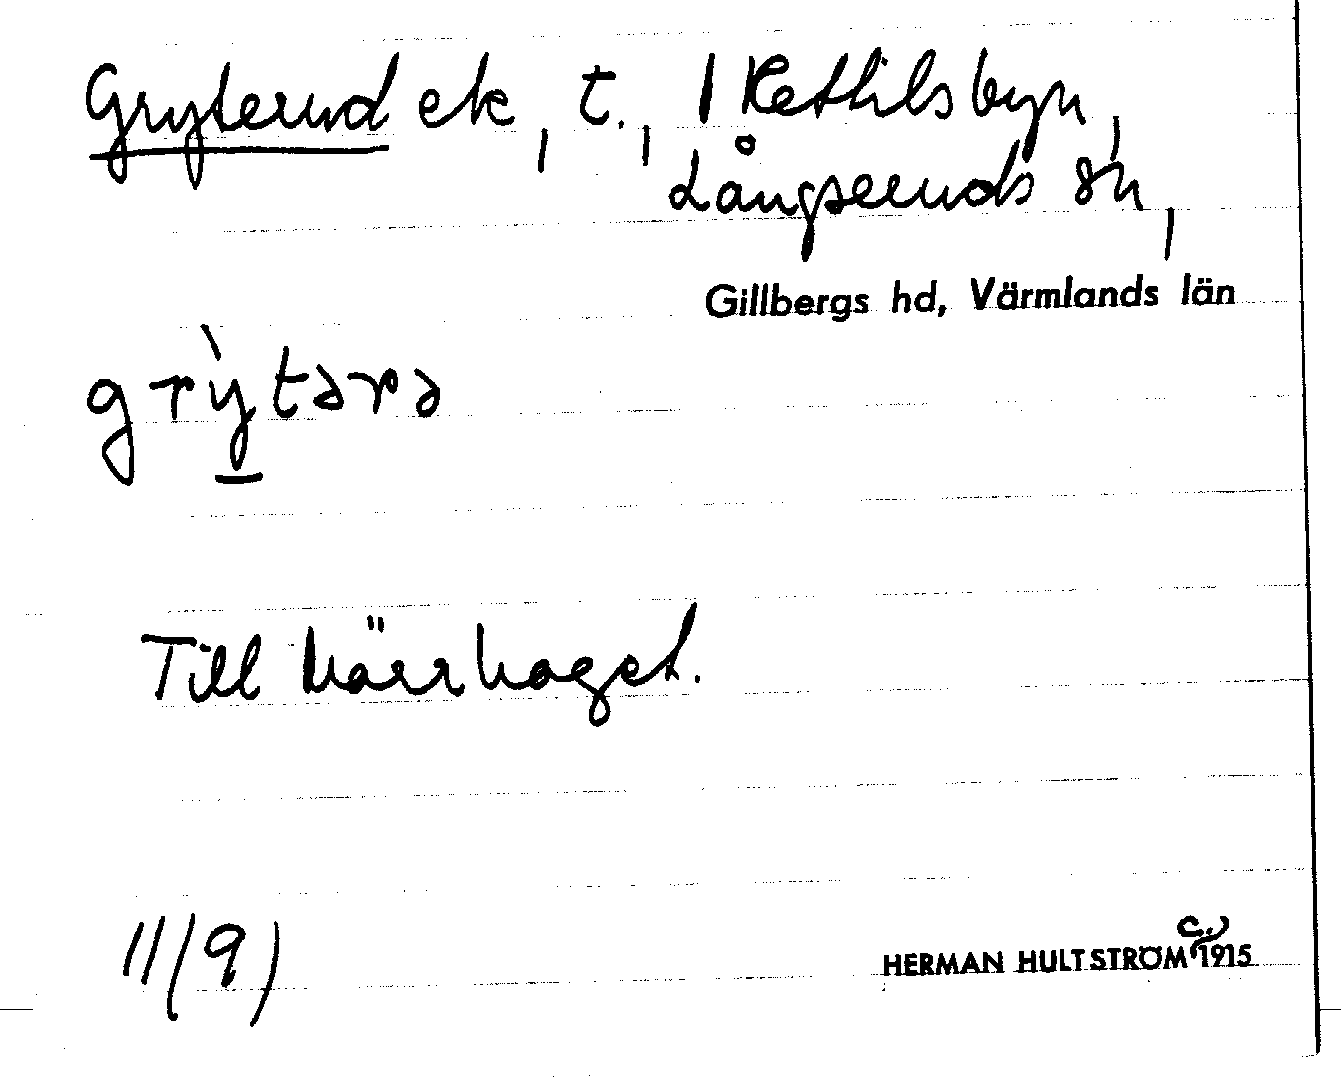 Gryterud ek, t., 1 Kettilsbyn,
Långseruds sn,
Gillbergs hd, Värmlands län
grỳtərə
Till Kärrhaget.
11(9)
HERMAN HULTSTRÖM (c.) 1915